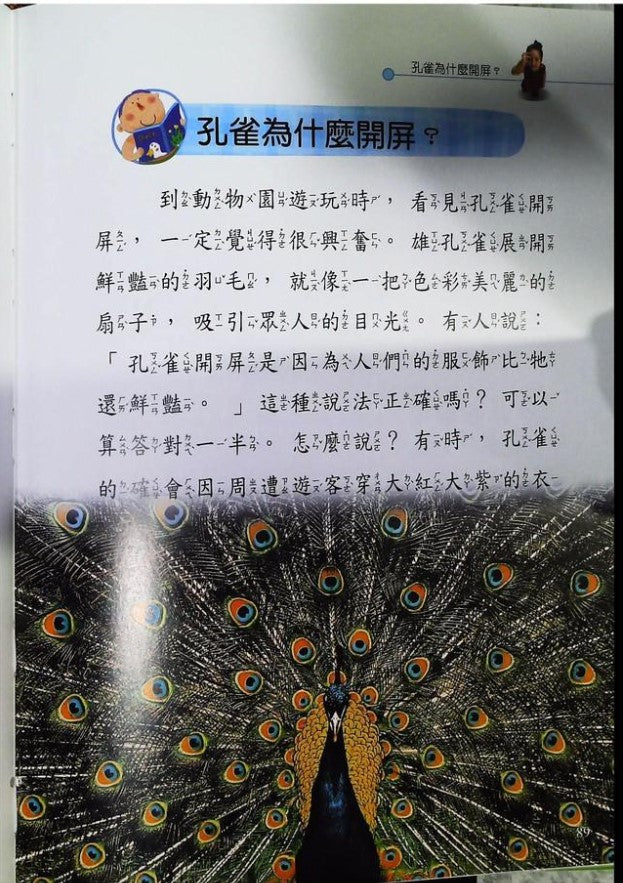 孔雀為什麼開屏？
孔雀為什麼開屏？
到動物園遊玩時，看見孔雀開
屏，一定覺得很興奮。雄孔雀展開
鮮豔的羽毛，就像一把色彩美麗的
扇子，吸引眾人的目光。有人說：
「孔雀開屏是因為人們的服飾比牠
還鮮豔。」這種說法正確嗎？可以
算答對一半。怎麼說？有時，孔雀
的確會因周遭遊客穿大紅大紫的衣
89